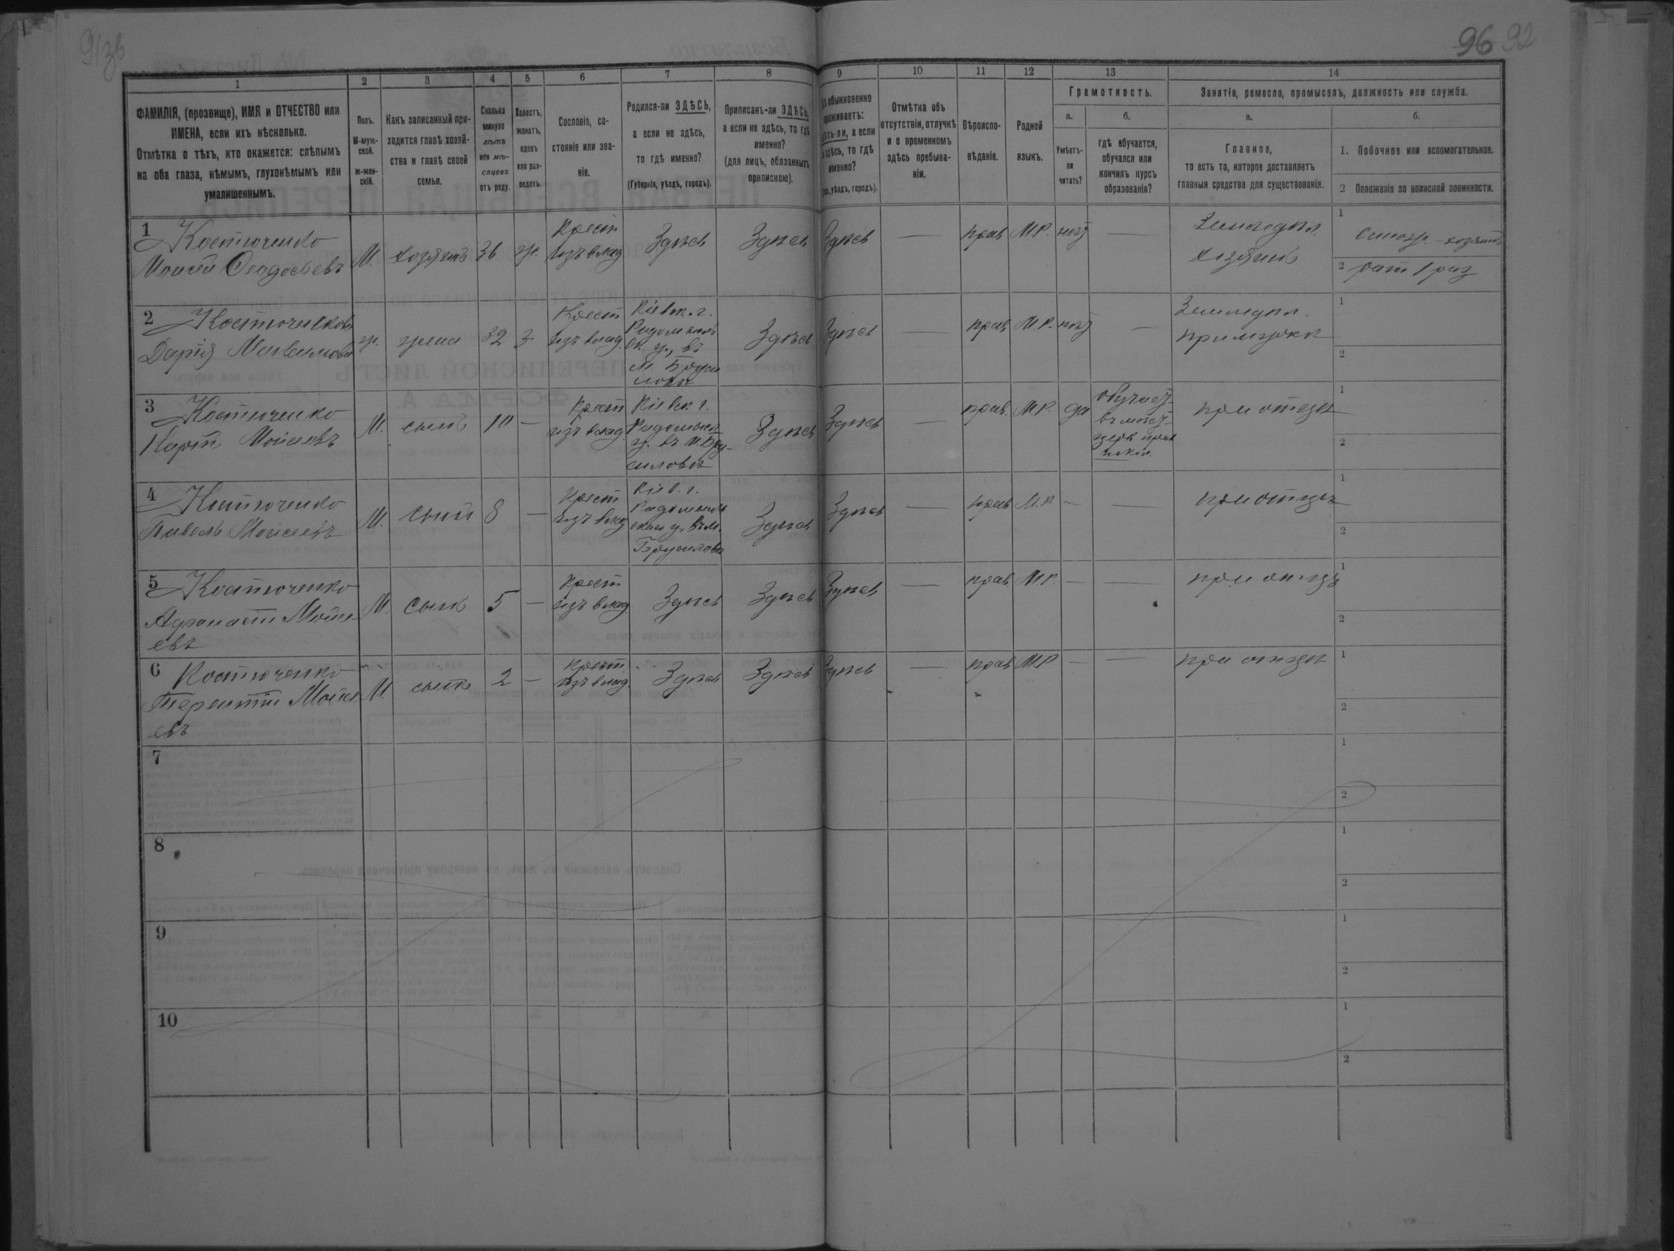 96 92
1 2 3 4 5 6 7 8 9 10 11 12 13 14
ФАМИЛІЯ, (прозвище), ИМЯ и ОТЧЕСТВО или
ИМЕНА, если ихъ нѣсколько.
Отмѣтка о тѣхъ, кто окажется: слѣпымъ
на оба глаза, нѣмымъ, глухонѣмымъ или
умалишеннымъ.
Полъ.
М-мужской.
ж-женскій.
Какъ записанный при-
ходится главѣ хозяй-
ства и главѣ своей
семьи.
Сколько
минуло
лѣтъ
или мѣ-
сяцевъ
отъ роду.
Холостъ,
женатъ,
вдовъ
или раз-
веденъ.
Сословіе, со-
стояніе или зва-
ніе.
Родился-ли ЗДѢСЬ,
а если не здѣсь,
то гдѣ именно?
(Губернія, уѣздъ, городъ).
Приписанъ-ли ЗДѢСЬ,
а если не здѣсь, то гдѣ
именно?
(для лицъ, обязанныхъ
припискою).
обыкновенно
проживаетъ:
здѣсь-ли, а если
не здѣсь, то гдѣ
именно?
уѣздъ, городъ).
Отмѣтка объ
отсутствіи, отлучкѣ
и о временномъ
здѣсь пребыва-
ніи.
Вѣроиспо-
вѣданіе.
Родной
языкъ.
Грамотность.
а.
Умѣетъ-
ли
читать?
б.
гдѣ обучается,
обучался или
кончилъ курсъ
образованія?
Занятіе, ремесло, промыселъ, должность или служба.
а.
Главное,
то есть то, которое доставляетъ
главныя средства для существованія.
б.
1. Побочное или вспомогательное.
2 Положеніе по воинской повинности.
1 Костюченко
Моисей М. хозяинъ 36 ж. Крест изъ влад Здѣсь Здѣсь Здѣсь — прав М.Р. нѣт — Земледѣл.
хозяинъ
1
2 рат 1 раз
2
Дарія ж. жена 32 з. Крест изъ влад
Кіевск. г.
Радомысль
ск у., въ
м. Бруси
ловѣ
Здѣсь Здѣсь — прав М.Р. нѣт — Земледѣл.
при мужѣ
1
2
3 Костюченко
Моисеевъ М. сынъ 10 — Крест изъ влад
Кіевск. г.
Радомысл
у. въ м. Бру-
силовѣ
Здѣсь Здѣсь — прав М.Р. да
при отцѣ
1
2
4 Костюченко
Павелъ Моисеевъ М. сынъ 8 — Крест изъ влад
Кіев. г.
Радомысл
ском у. въ м.
Брусиловѣ
Здѣсь Здѣсь — прав М.Р. — — при отцѣ
1
2
5 Костюченко
Моисе
евъ
М. сынъ 5 — Крест изъ влад Здѣсь Здѣсь Здѣсь — прав М.Р. — — при отцѣ
1
2
6 Костюченко
Терентій Моисе
евъ
М. сынъ 2 — Крест изъ влад Здѣсь Здѣсь Здѣсь — прав М.Р. — — при отцѣ
1
2
7 1
2
8 1
2
9 1
2
10 1
2